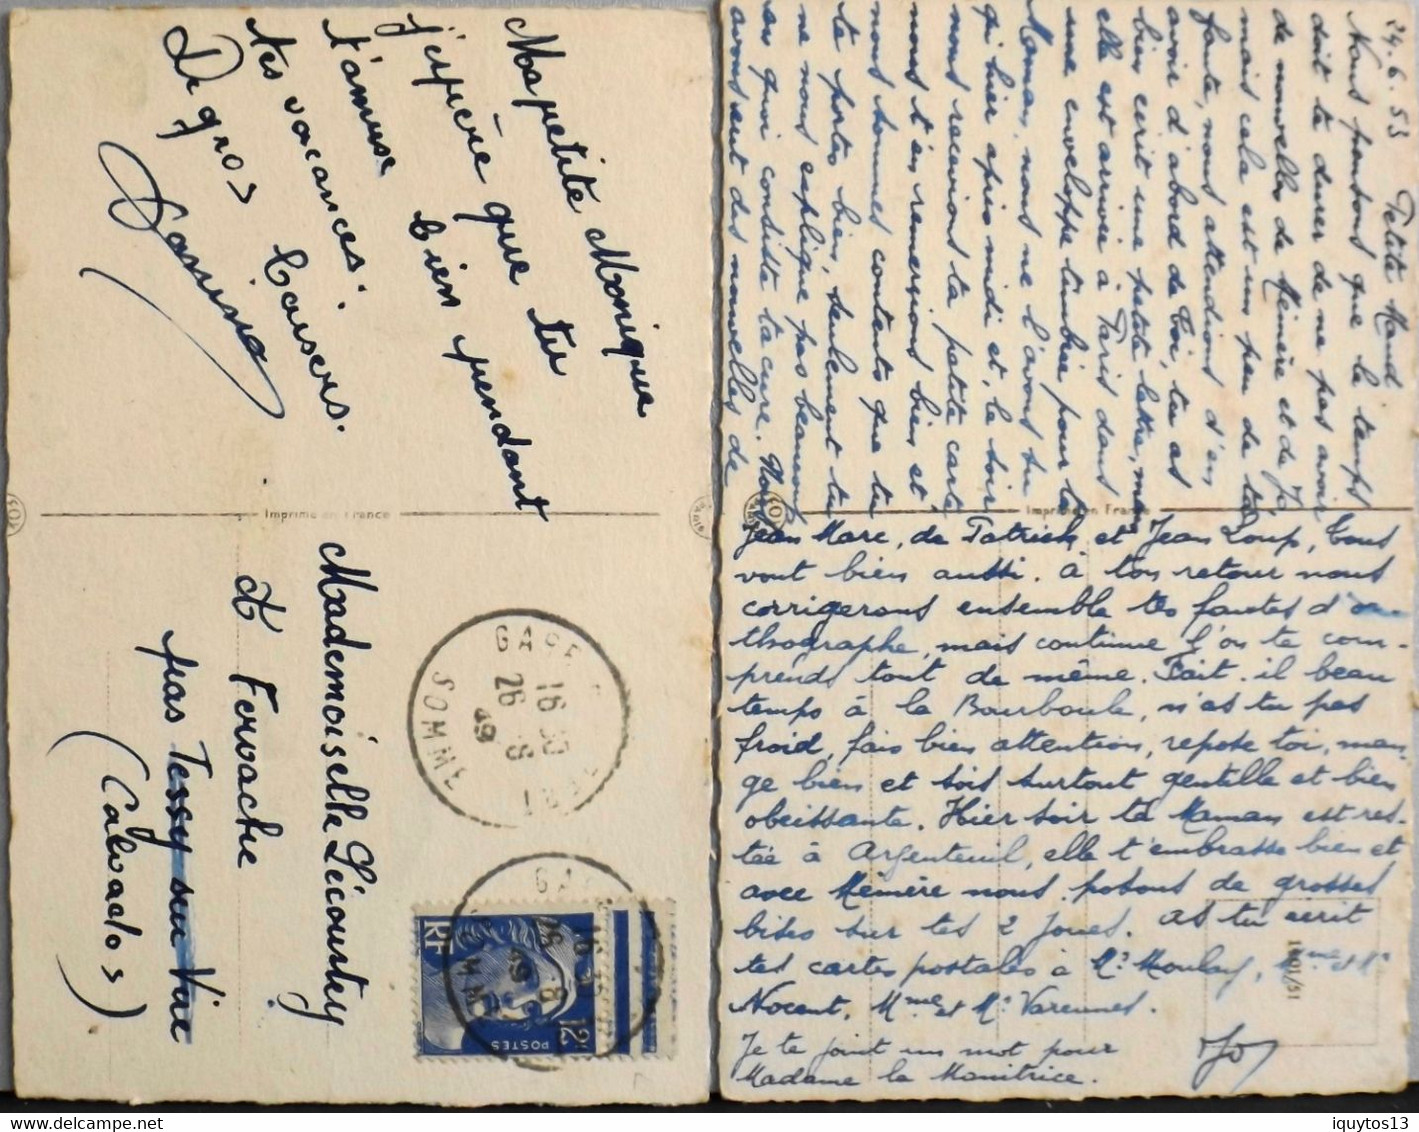 Ma petite Monique
j'espère que tu
t'amuse bien pendant
tes vacances.
De gros baisers.
Imprimé en France
Mademoiselle Lécourtey
à Fervache
par Tessy sur Vire
(Calvados)
GARE
16 30
26 8
49
SOMME
RF
POSTES
12F
24.6.53
Petite Maud
Nous pensons que le temps
doit te durer de ne pas avoir
de nouvelles de Mémère et de Jo
mais cela est un peu de ta
faute, nous attendions d'en
avoir d'abord de toi, tu as
bien écrit une petite lettre, mais
elle est arrivée à Paris dans
une enveloppe timbrée pour ta
Maman, nous ne l'avons su
qu'hier après midi et, le soir
nous recevions ta petite carte
nous t'en remercions bien et
nous sommes contents que tu
te portes bien, seulement tu
ne nous explique pas beaucoup
en quoi consiste ta cure. Nous
avons eu des nouvelles de
Imprimé en France
Jean Marc, de Patrick, et Jean Loup, tous
vont bien aussi. à ton retour nous
corrigerons ensemble tes fautes d'or-
thographe, mais continue l'on te com-
prends tout de même. Fait-il beau
temps à la Bourboule, n'as tu pas
froid, fais bien attention, repose toi, man-
ge bien et sois surtout gentille et bien
obeissante. Hier soir ta Maman est res-
tée à Argenteuil, elle t'embrasse bien et
avec Mémère nous posons de grosses
bises sur tes 2 joues. as tu écrit
tes cartes postales à Mr Moulay, Mme et Mr
Nocent, Mme et Mr Varennes.
Je te joint un mot pour
Madame la Monitrice.
Jo
iquytos13